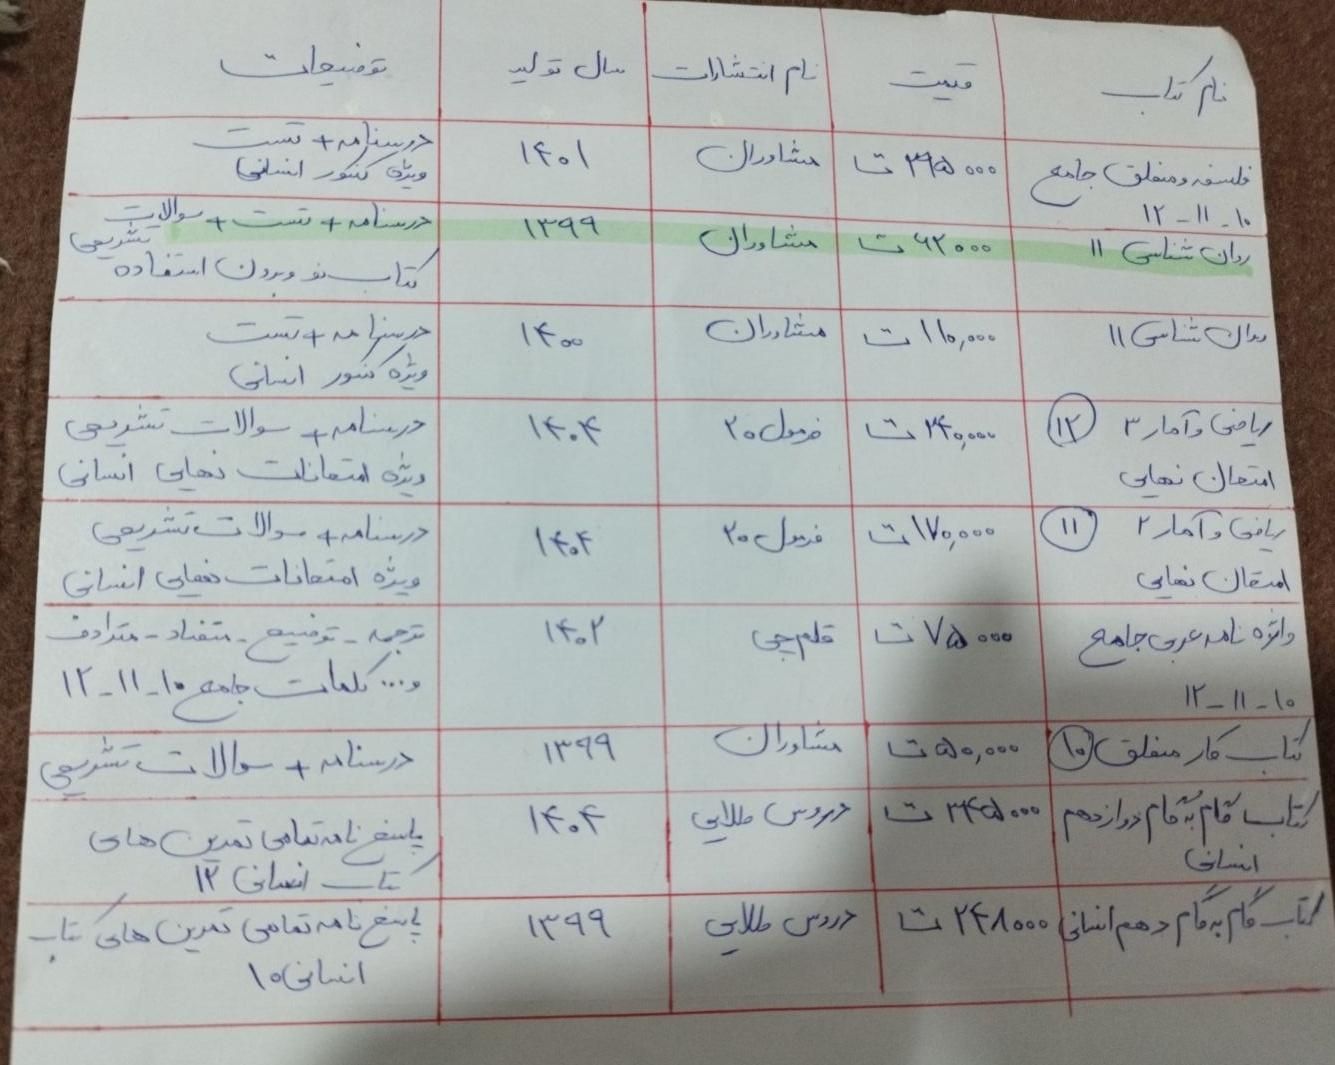 نام کتاب	قیمت	نام انتشارات	سال تولید	توضیحات
فلسفه و منطق جامع	۳۹۵۰۰۰ ت	مشاوران	۱۴۰۱	درسنامه + تست
۱۰ - ۱۱ - ۱۲				ویژه کنکور انسانی
روان شناسی ۱۱	۶۲۰۰۰ ت	مشاوران	۱۳۹۹	درسنامه + تست + سوالات تشریحی
کتاب نو و بدون استفاده
روان شناسی ۱۱	۱۱۰,۰۰۰ ت	مشاوران	۱۴۰۰	درسنامه + تست
ویژه کنکور انسانی
ریاضی و آمار ۳ ۱۲	۲۴۰,۰۰۰ ت	فرمول ۲۰	۱۴۰۴	درسنامه + سوالات تشریحی
امتحان نهایی				ویژه امتحانات نهایی انسانی
ریاضی و آمار ۲ ۱۱	۱۷۰,۰۰۰ ت	فرمول ۲۰	۱۴۰۴	درسنامه + سوالات تشریحی
امتحان نهایی				ویژه امتحانات نهایی انسانی
واژه نامه عربی جامع	۷۵۰۰۰ ت	قلم چی	۱۴۰۲	ترجمه - توضیح - متضاد - مترادف
۱۰ - ۱۱ - ۱۲				و... کلمات جامع ۱۰ - ۱۱ - ۱۲
کتاب کار منطق ۱۰	۵۰,۰۰۰ ت	مشاوران	۱۳۹۹	درسنامه + سوالات تشریحی
کتاب گام به گام دوازدهم	۳۴۵۰۰۰ ت	دروس طلایی	۱۴۰۴	پاسخ نامه تمامی تمرین های
انسانی				کتاب انسانی ۱۲
کتاب گام به گام دهم انسانی	۲۴۸۰۰۰ ت	دروس طلایی	۱۳۹۹	پاسخ نامه تمامی تمرین های کتاب
انسانی ۱۰